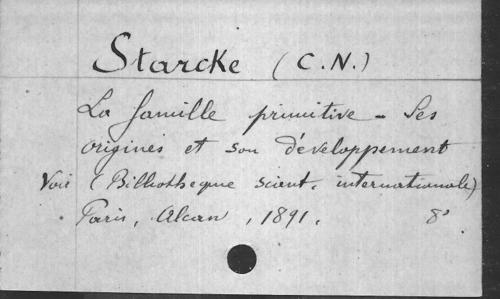 Starcke (C.N.)
La famille primitive - Ses
origines et son développement
Voir (Bibliotheque scient. internationale)
Paris, Alcan, 1891. 8°